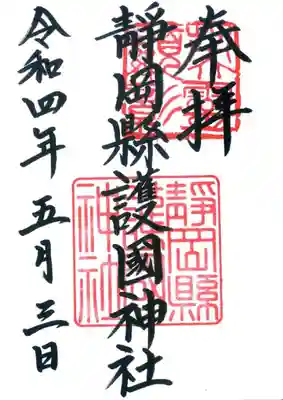 奉拝
靜岡縣護國神社
令和四年 五月 三日
靜岡縣
護國
神社